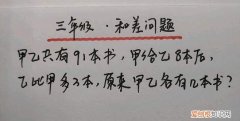 三年级·和差问题
甲乙共有91本书，甲给乙8本后，
乙比甲多3本，原来甲乙各有几本书？